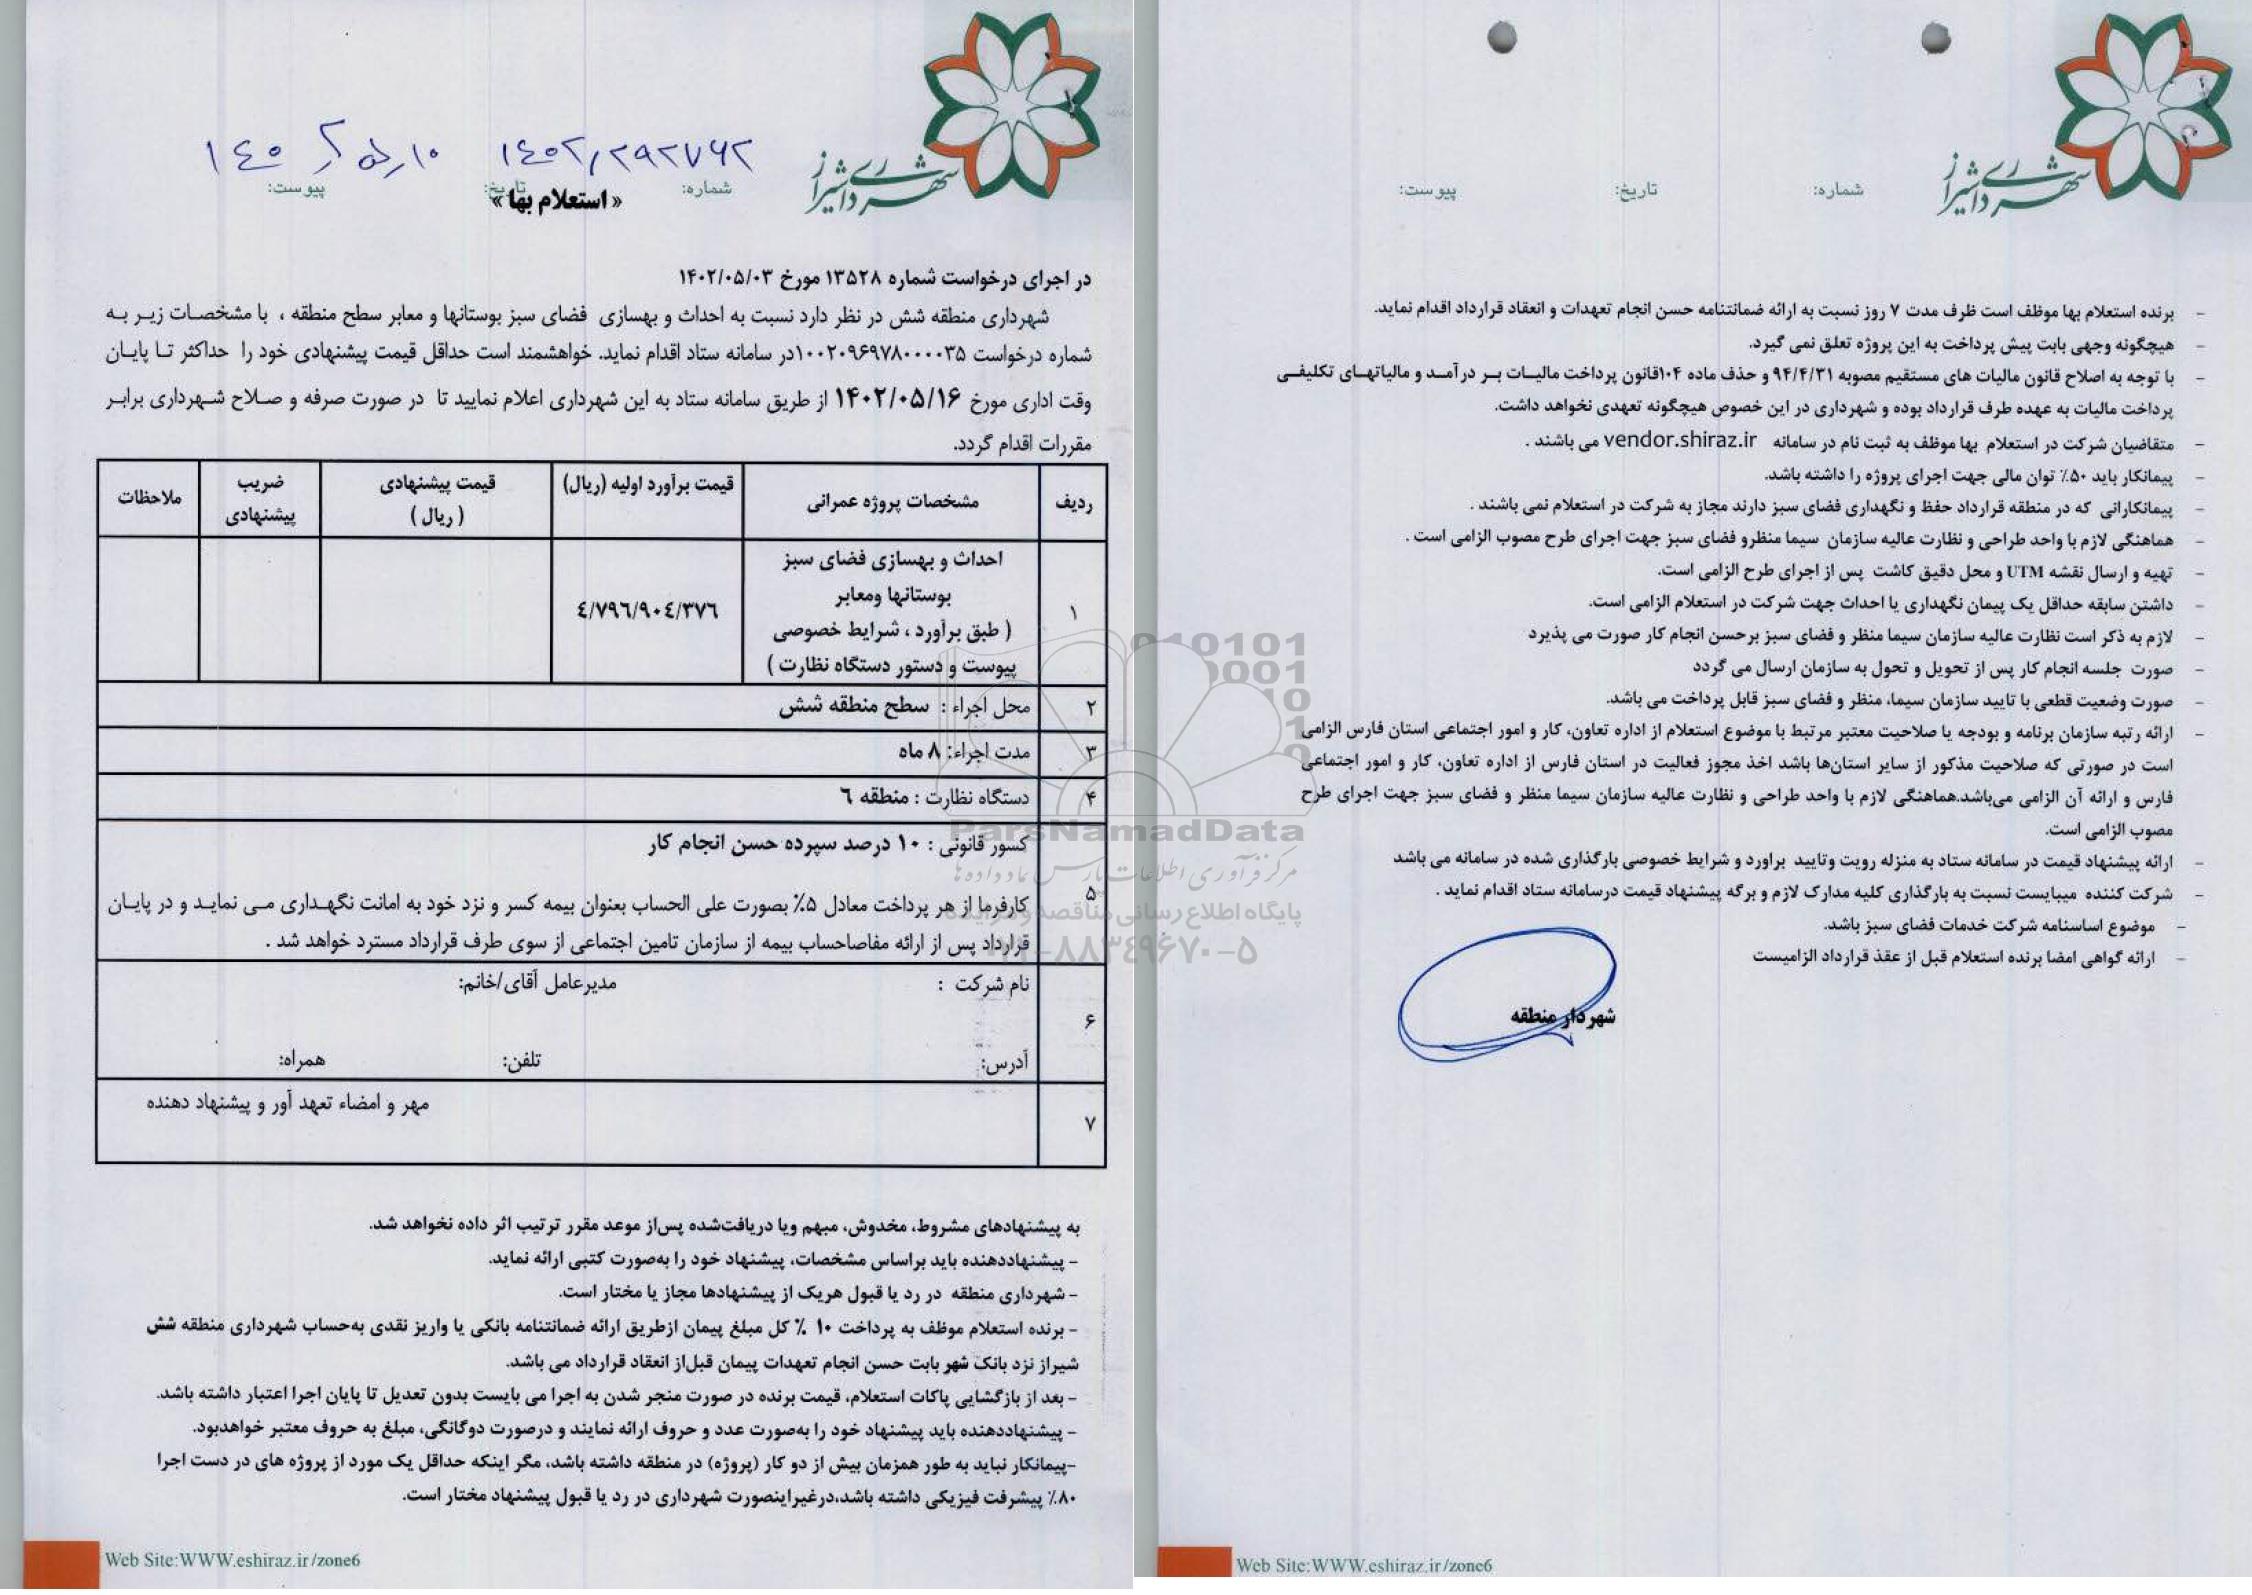 شهرداری شیراز
۱۴۰۲/۲۹۲۷۶۲
شماره:
تاریخ:
پیوست:
« استعلام بها»
در اجرای درخواست شماره ۱۳۵۲۸ مورخ ۱۴۰۲/۰۵/۰۳
شهرداری منطقه شش در نظر دارد نسبت به احداث و بهسازی فضای سبز بوستانها و معابر سطح منطقه ، با مشخصات زیر به
شماره درخواست ۱۰۰۲۰۹۶۹۷۸۰۰۰۰۳۵در سامانه ستاد اقدام نماید. خواهشمند است حداقل قیمت پیشنهادی خود را حداکثر تا پایان
وقت اداری مورخ ۱۴۰۲/۰۵/۱۶ از طریق سامانه ستاد به این شهرداری اعلام نمایید تا در صورت صرفه و صلاح شهرداری برابر
مقررات اقدام گردد.
ردیف
مشخصات پروژه عمرانی
قیمت برآورد اولیه (ریال)
قیمت پیشنهادی
( ریال )
ضریب
پیشنهادی
ملاحظات
۱
احداث و بهسازی فضای سبز
بوستانها ومعابر
( طبق برآورد ، شرایط خصوصی
پیوست و دستور دستگاه نظارت )
٤/۷۹٦/۹۰٤/۳۷٦
۲
محل اجراء : سطح منطقه شش
۳
مدت اجراء: ۸ ماه
۴
دستگاه نظارت : منطقه ٦
۵
کسور قانونی : ۱۰ درصد سپرده حسن انجام کار
کارفرما از هر پرداخت معادل ۵٪ بصورت علی الحساب بعنوان بیمه کسر و نزد خود به امانت نگهداری می نماید و در پایان
قرارداد پس از ارائه مفاصاحساب بیمه از سازمان تامین اجتماعی از سوی طرف قرارداد مسترد خواهد شد .
۶
نام شرکت :
مدیرعامل آقای/خانم:
آدرس:
تلفن:
همراه:
۷
مهر و امضاء تعهد آور و پیشنهاد دهنده
به پیشنهادهای مشروط، مخدوش، مبهم ویا دریافت‌شده پس‌از موعد مقرر ترتیب اثر داده نخواهد شد.
- پیشنهاددهنده باید براساس مشخصات، پیشنهاد خود را به‌صورت کتبی ارائه نماید.
- شهرداری منطقه در رد یا قبول هریک از پیشنهادها مجاز یا مختار است.
- برنده استعلام موظف به پرداخت ۱۰ ٪ کل مبلغ پیمان ازطریق ارائه ضمانتنامه بانکی یا واریز نقدی به‌حساب شهرداری منطقه شش
شیراز نزد بانک شهر بابت حسن انجام تعهدات پیمان قبل‌از انعقاد قرارداد می باشد.
- بعد از بازگشایی پاکات استعلام، قیمت برنده در صورت منجر شدن به اجرا می بایست بدون تعدیل تا پایان اجرا اعتبار داشته باشد.
- پیشنهاددهنده باید پیشنهاد خود را به‌صورت عدد و حروف ارائه نمایند و درصورت دوگانگی، مبلغ به حروف معتبر خواهدبود.
-پیمانکار نباید به طور همزمان بیش از دو کار (پروژه) در منطقه داشته باشد، مگر اینکه حداقل یک مورد از پروژه های در دست اجرا
۸۰٪ پیشرفت فیزیکی داشته باشد،درغیراینصورت شهرداری در رد یا قبول پیشنهاد مختار است.
Web Site:WWW.eshiraz.ir/zone6
شهرداری شیراز
شماره:
تاریخ:
پیوست:
- برنده استعلام بها موظف است ظرف مدت ۷ روز نسبت به ارائه ضمانتنامه حسن انجام تعهدات و انعقاد قرارداد اقدام نماید.
- هیچگونه وجهی بابت پیش پرداخت به این پروژه تعلق نمی گیرد.
- با توجه به اصلاح قانون مالیات های مستقیم مصوبه ۹۴/۴/۳۱ و حذف ماده ۱۰۴قانون پرداخت مالیات بر درآمد و مالیاتهای تکلیفی
پرداخت مالیات به عهده طرف قرارداد بوده و شهرداری در این خصوص هیچگونه تعهدی نخواهد داشت.
- متقاضیان شرکت در استعلام بها موظف به ثبت نام در سامانه vendor.shiraz.ir می باشند .
- پیمانکار باید ۵۰٪ توان مالی جهت اجرای پروژه را داشته باشد.
- پیمانکارانی که در منطقه قرارداد حفظ و نگهداری فضای سبز دارند مجاز به شرکت در استعلام نمی باشند .
- هماهنگی لازم با واحد طراحی و نظارت عالیه سازمان سیما منظرو فضای سبز جهت اجرای طرح مصوب الزامی است .
- تهیه و ارسال نقشه UTM و محل دقیق کاشت پس از اجرای طرح الزامی است.
- داشتن سابقه حداقل یک پیمان نگهداری یا احداث جهت شرکت در استعلام الزامی است.
- لازم به ذکر است نظارت عالیه سازمان سیما منظر و فضای سبز برحسن انجام کار صورت می پذیرد
- صورت جلسه انجام کار پس از تحویل و تحول به سازمان ارسال می گردد
- صورت وضعیت قطعی با تایید سازمان سیما، منظر و فضای سبز قابل پرداخت می باشد.
- ارائه رتبه سازمان برنامه و بودجه یا صلاحیت معتبر مرتبط با موضوع استعلام از اداره تعاون، کار و امور اجتماعی استان فارس الزامی
است در صورتی که صلاحیت مذکور از سایر استان‌ها باشد اخذ مجوز فعالیت در استان فارس از اداره تعاون، کار و امور اجتماعی
فارس و ارائه آن الزامی می‌باشد.هماهنگی لازم با واحد طراحی و نظارت عالیه سازمان سیما منظر و فضای سبز جهت اجرای طرح
مصوب الزامی است.
- ارائه پیشنهاد قیمت در سامانه ستاد به منزله رویت وتایید براورد و شرایط خصوصی بارگذاری شده در سامانه می باشد
- شرکت کننده میبایست نسبت به بارگذاری کلیه مدارک لازم و برگه پیشنهاد قیمت درسامانه ستاد اقدام نماید .
- موضوع اساسنامه شرکت خدمات فضای سبز باشد.
- ارائه گواهی امضا برنده استعلام قبل از عقذ قرارداد الزامیست
شهردار منطقه
Web Site:WWW.eshiraz.ir/zone6
ParsNamadData
مرکز فرآوری اطلاعات پارس نماد داده ها
پایگاه اطلاع رسانی مناقصه و مزایده
۰۲۱-۸۸۳٤۹۶۷۰-۵